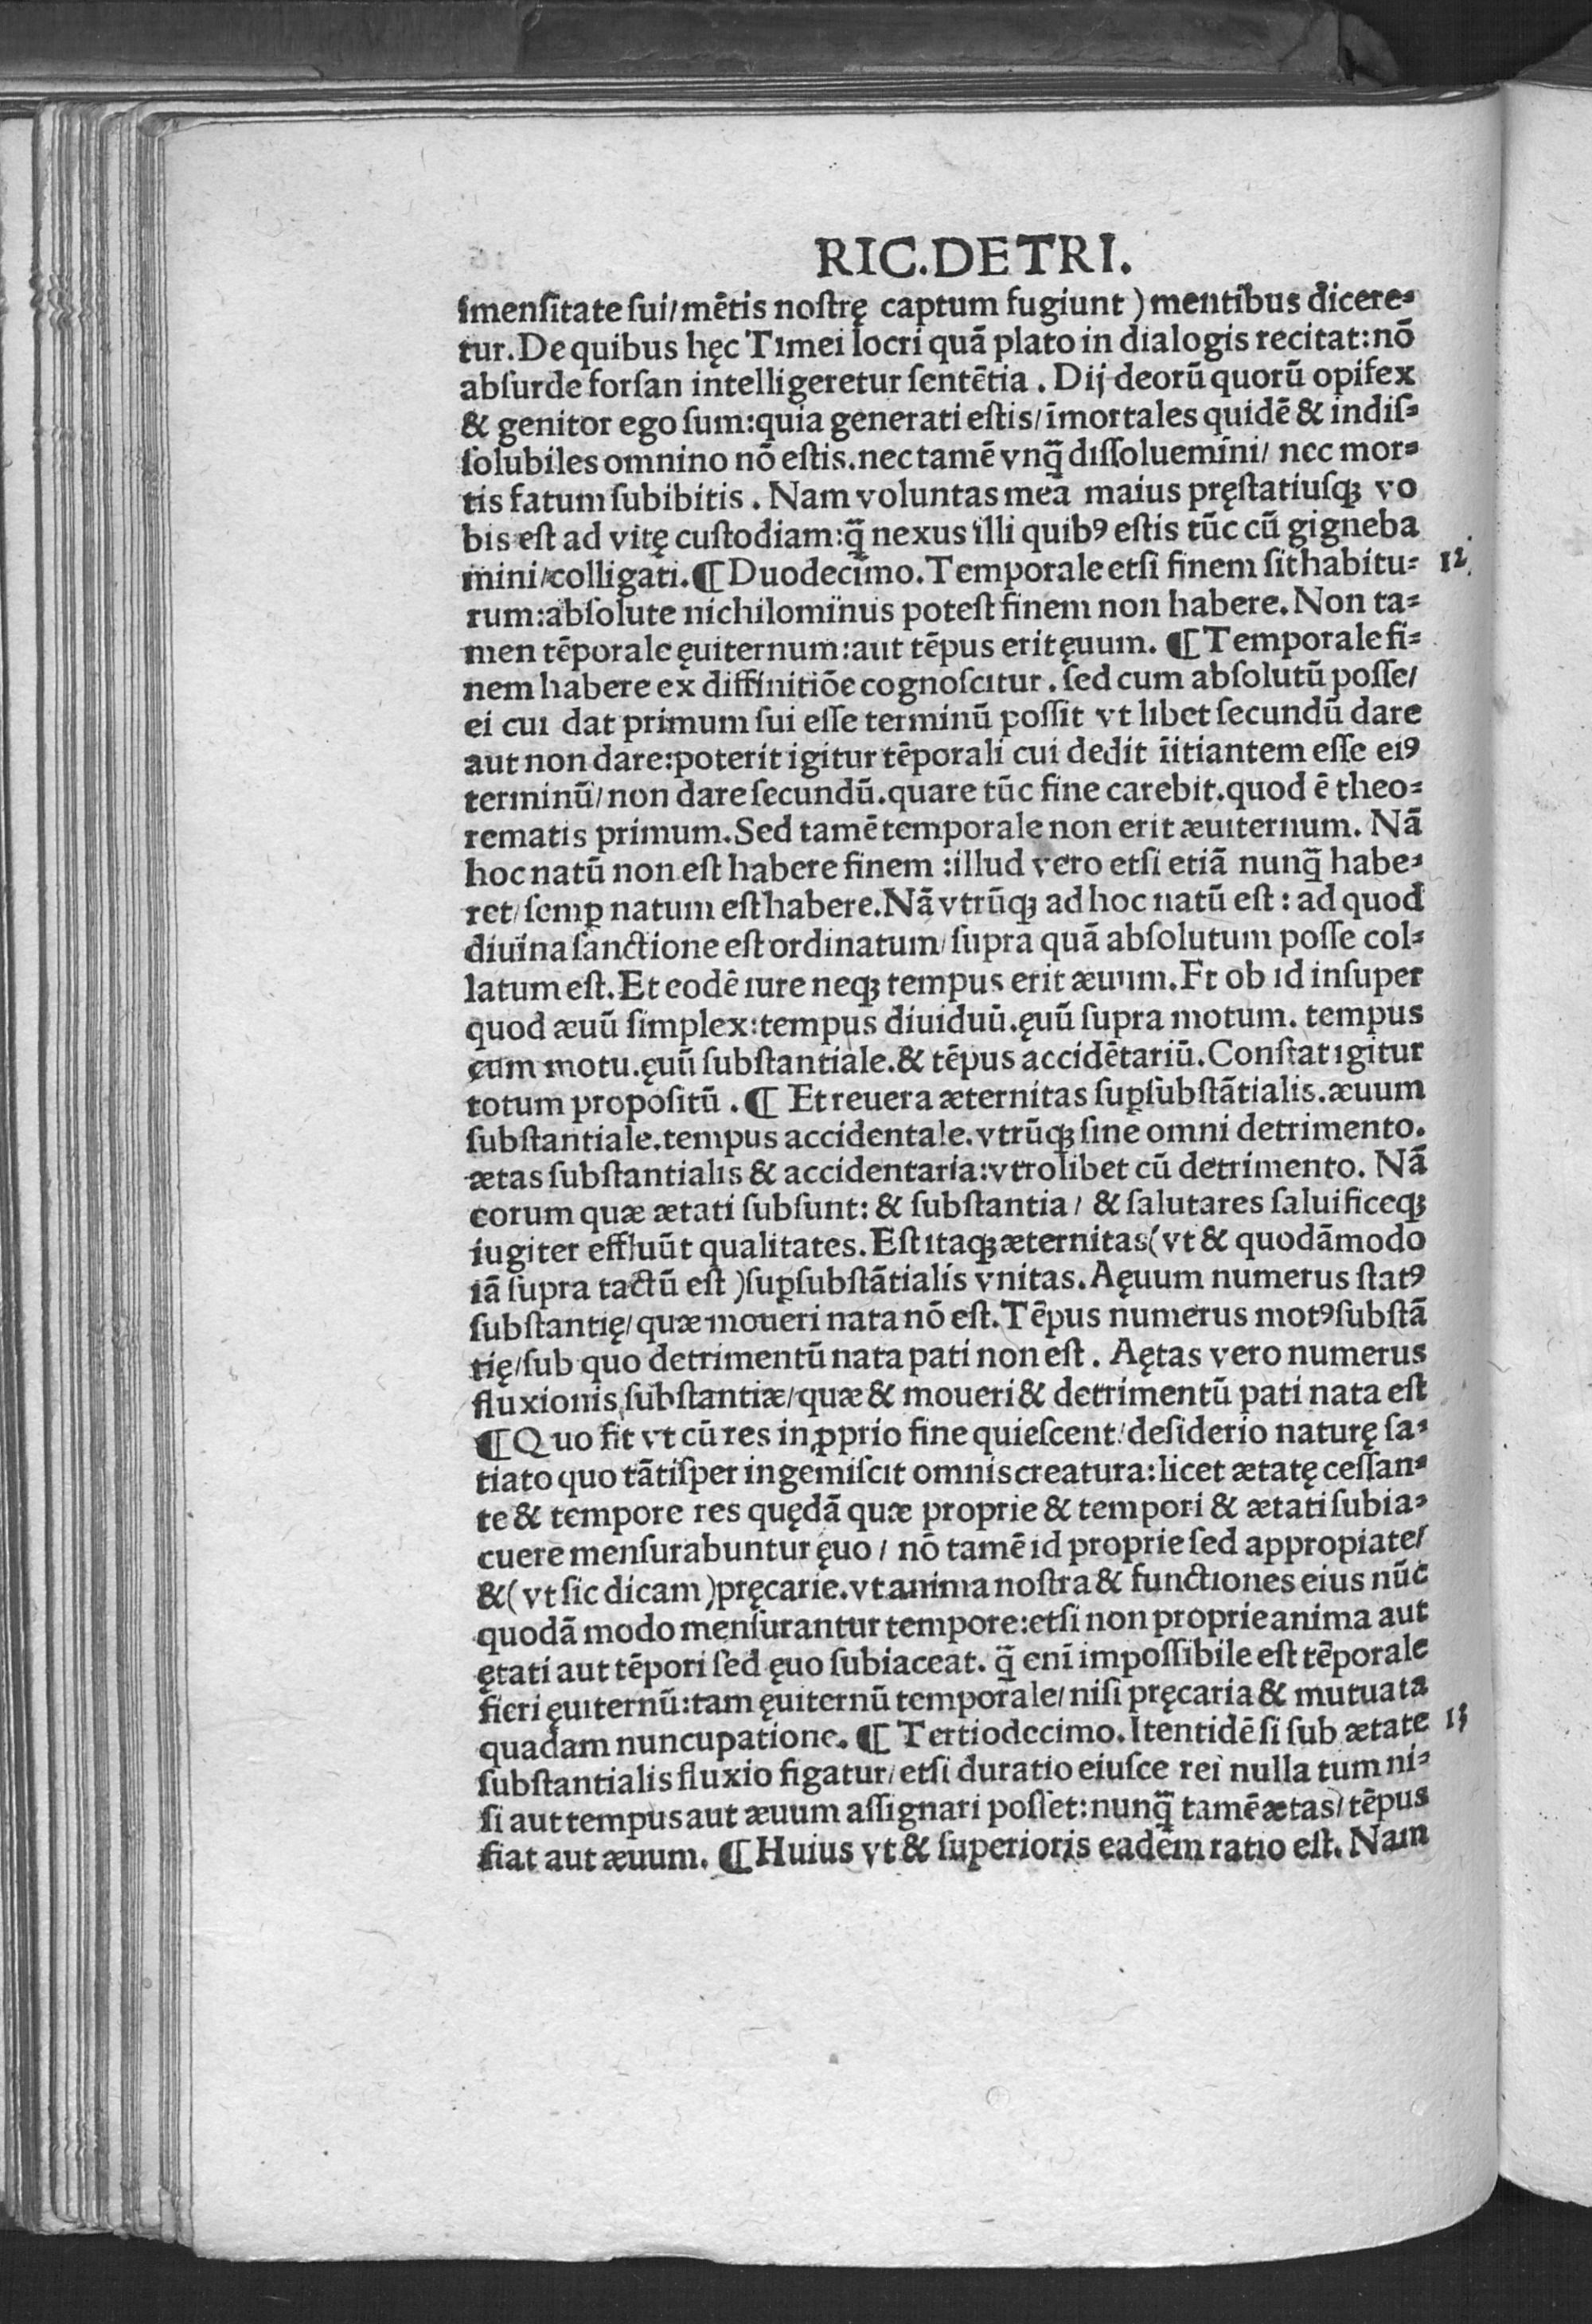 RIC.DE TRI.
imensitate sui/mētis nostrę captum fugiunt) mentibus dicere⸗
tur. De quibus hęc Timei locri quā plato in dialogis recitat:nō
absurde forsan intelligeretur sentētia. Dij deorū quorū opifex
& genitor ego sum:quia generati estis/īmortales quidē & indis⸗
solubiles omnino nō estis.nec tamē vnq̄ dissoluemini/ nec mor⸗
tis fatum subibitis. Nam voluntas mea maius pręstatiusqꝫ vo
bis est ad vitę custodiam:q̄ nexus illi quibꝰ estis tūc cū gigneba
mini/colligati.¶Duodecimo.Temporale etsi finem sit habitu⸗ 12
rum:absolute nichilominus potest finem non habere.Non ta⸗
men tēporale ęuiternum:aut tēpus erit ęuum. ¶Temporale fi⸗
nem habere ex diffinitiōe cognoscitur. sed cum absolutū posse/
ei cui dat primum sui esse terminū possit vt libet secundū dare
aut non dare:poterit igitur tēporali cui dedit īitiantem esse eiꝰ
terminū/non dare secundū.quare tūc fine carebit.quod ē theo⸗
rematis primum.Sed tamē temporale non erit æuiternum. Nā
hoc natū non est habere finem:illud vero etsi etiā nunq̄ habe⸗
ret/semꝑ natum est habere.Nā vtrūqꝫ ad hoc natū est: ad quod
diuina sanctione est ordinatum/supra quā absolutum posse col⸗
latum est.Et eodē iure neqꝫ tempus erit æuum.Et ob id insuper
quod æuū simplex:tempus diuiduū.ęuū supra motum. tempus
cum motu.ęuū substantiale.& tēpus accidētariū.Constat igitur
totum propositū. ¶ Et reuera æternitas suꝑsubstātialis.æuum
substantiale.tempus accidentale.vtrūqꝫ sine omni detrimento.
ætas substantialis & accidentaria:vtrolibet cū detrimento. Nā
eorum quæ ætati subsunt: & substantia/ & salutares saluificeqꝫ
iugiter effluūt qualitates.Est itaqꝫ æternitas(vt & quodāmodo
iā supra tactū est)suꝑsubstātialis vnitas.Aęuum numerus statꝰ
substantię/quæ moueri nata nō est.Tēpus numerus motꝰ substā
tię/sub quo detrimentū nata pati non est. Aętas vero numerus
fluxionis substantiæ/quæ & moueri & detrimentū pati nata est
¶Quo fit vt cū res in ꝓprio fine quiescent/desiderio naturę sa⸗
tiato quo tātisper ingemiscit omnis creatura:licet ætatę cessan⸗
te & tempore res quędā quæ proprie & tempori & ætati subia⸗
cuere mensurabuntur ęuo/ nō tamē id proprie sed appropiate/
&(vt sic dicam)pręcarie.vt anima nostra & functiones eius nūc
quodā modo mensurantur tempore:etsi non proprie anima aut
ętati aut tēpori sed ęuo subiaceat. q̄ enī impossibile est tēporale
fieri ęuiternū:tam ęuiternū temporale/nisi pręcaria & mutuata
quadam nuncupatione. ¶ Tertiodecimo.Itentidē si sub ætate 13
substantialis fluxio figatur/etsi duratio eiusce rei nulla tum ni⸗
si aut tempus aut æuum assignari posset:nunq̄ tamē ætas/tēpus
fiat aut æuum. ¶Huius vt & superioris eadem ratio est. Nam